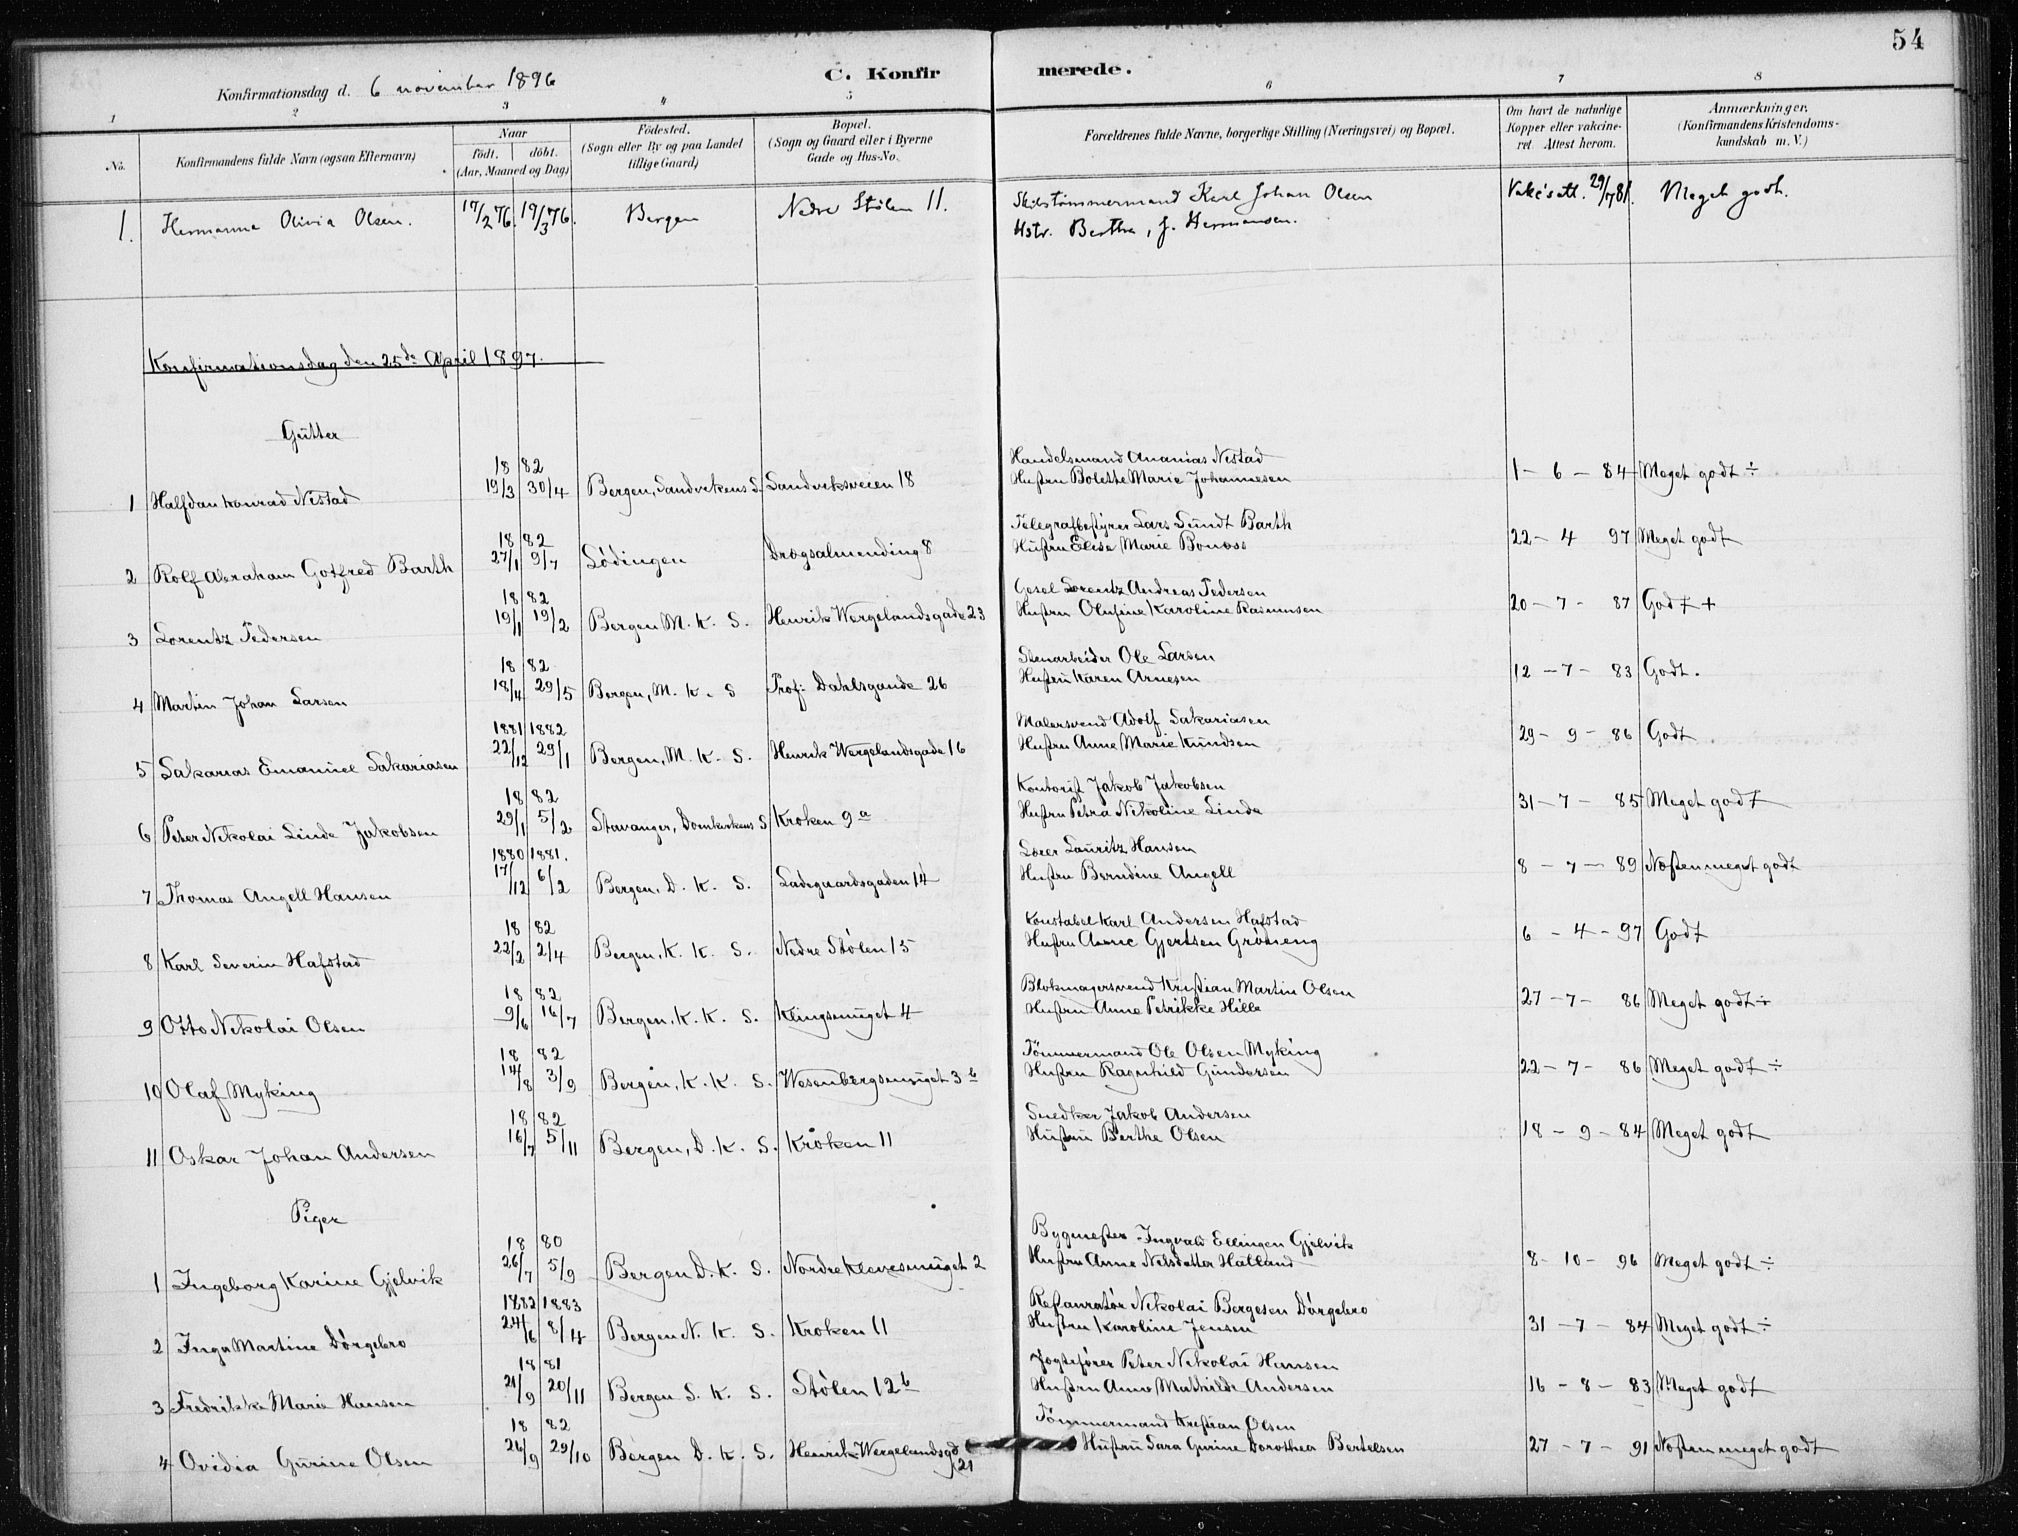 54
Konfirmationsdag d. 6 november 1896
C. Konfirmerede.
1 2 3 4 5 6 7 8
No. Konfirmandens fulde Navn (ogsaa Efternavn) Naar födt. döbt. (Aar, Maaned og Dag) Födested. (Sogn eller By og paa Landet tillige Gaard) Bopæl. (Sogn og Gaard eller i Byerne Gade og Hus-No. Forældrenes fulde Navne, borgerlige Stilling (Næringsvei) og Bopæl. Om havt de naturlige Kopper eller vakcineret. Attest herom. Anmærkninger. (Konfirmandens Kristendomskundskab m. V.)
1. Hermanna Olivia Olsen. 17/2 76. 19/3 76. Bergen Nedre Stölen 11. Skibstömmermand Karl Johan Olsen Vakc.att. 29/7 81. Meget godt.
Hstr. Bertha, f. Hermansen.
Konfirmationsdag den 25de April 1897.
Gutter
1 Halfdan Konrad Nestad 1882 19/3 30/4 Bergen, Sandvikens S. Sandviksveien 18 Handelsmand Ananias Nestad
Hustru Bolette Marie Johannesen 1-6-84 Meget godt ÷
2 Rolf Abraham Gotfred Barth 1882 27/1 9/7 Lödingen Drægsalmending 8 Telegrafbestyrer Lars Lundt Barth
Hustru Elise Marie Bonæss 22-4 97 Meget godt
3 Lorentz Pedersen 1882 19/1 19/2 Bergen M. K. S. Henrik Wergelandsgade 23 Gesel Lorentz Andreas Pedersen
Hustru Olufine Karoline Rasmusen 20-7-87 Godt +
4 Martin Johan Larsen 1882 18/4 29/5 Bergen, M. K. S Prof. Dahlsgande 26 Stenarbeider Ole Larsen
Hustru Karen Arnesen 12-7-83 Godt.
5 Sakarias Emanuel Sakariasen 1881 1882 22/12 29/1 Bergen, M. K. S. Henrik Wergelandsgade 16 Malersvend Adolf Sakariasen
Hustru Anne Marie Knudsen 29-9-86 Godt
6 Peter Nikolai Linde Jakobsen 1882 29/1 5/2 Stavanger, Domkirkens S Kroken 9a Kontorist Jakob Jakobsen
Hustru Petra Nikoline Linde 31-7-85 Meget godt
7 Thomas Angell Hansen 1880 1881. 17/12 6/2 Bergen, D. K. S. Ladegaardsgaden 14 Lærer Lauritz Hansen
Hustru Berndine Angell 8-7-89 Næsten meget godt
8 Karl Severin Hafstad 1882 22/2 2/4 Bergen, K. K. S. Nedre Stölen 15 Konstabel Karl Andersen Hafstad
Hustru Anne Gjertsen Gröneng 6-4-97 Godt
9 Otto Nikolai Olsen 1882 9/6 16/7 Bergen, K. K. S. Klingsmuget 4 Blokmagersvend Kristian Martin Olsen
Hustru Anne Petrikke Hille 27-7-86 Meget godt ÷
10 Olaf Myking 1882 14/8 3/9 Bergen, K. K. S. Wesenbergsmuget 3b Tömmermand Ole Olsen Myking
Hustru Ragnhild Gundersen 22-7-86 Meget godt ÷
11 Oskar Johan Andersen 1882 16/7 5/11 Bergen, D. K. S. Kroken 11 Snedker Jakob Andersen
Hustru Berthe Olsen 18-9-84 Meget godt
Piger
1 Ingeborg Karine Gjelvik 1880 26/7 5/9 Bergen D. K. S. Nordre Klevesmuget 2 Bygmester Ingvald Ellingen Gjelvik
Hustru Anne Nelsdatter Hatland 8-10-96 Meget godt ÷
2 Inga Martine Dörgebro 1882 1883 24/6 8/4 Bergen N. K. S. Kroken 11 Restauratör Nikolai Bergesen Dörgebro
Hustru Karoline Jensen 31-7-84 Meget godt ÷
3 Fredrikke Marie Hansen 1881 21/9 20/11 Bergen D. K. S. Stölen 12b Jogtefører Peter Nikolai Hansen
Hustru Anne Mathilde Andersen 16-8-83 Meget godt
4 Ovidia Gurine Olsen 1882 26/9 29/10 Bergen D. K. S. Henrik Wergelandsgd 21 Tömmermand Kristian Olsen
Hustru Sara Gurine Dorothea Bertelsen 27-7-91 Næsten meget godt